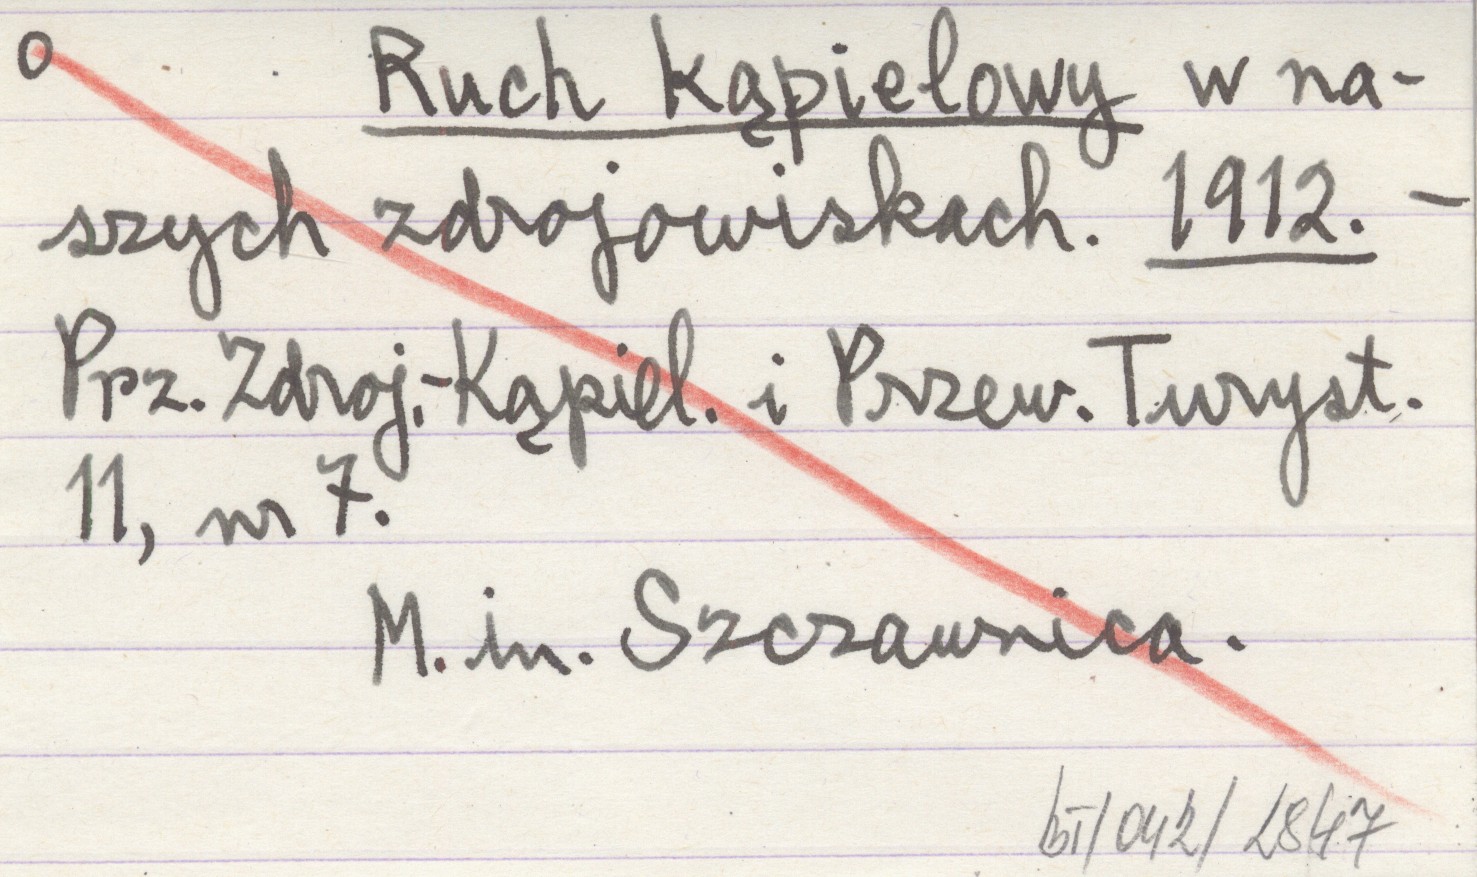 o Ruch kąpielowy w na-
szych zdrojowiskach. 1912. -
Prz. Zdroj.-Kąpiel. i Przew. Turyst.
11, nr 7.
M. in. Szczawnica.
bI/042/2847